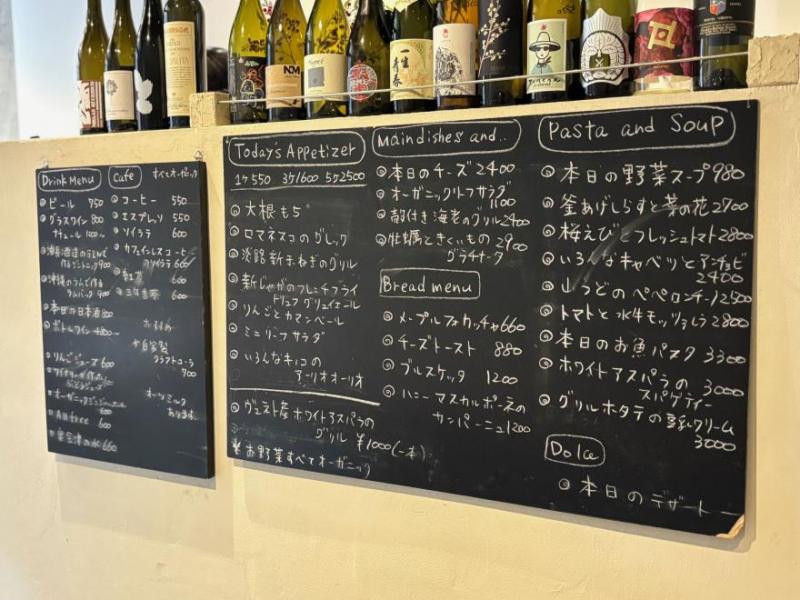 Drink Menu
ビール 750
グラスワイン 800
ナチュール
本日の日本酒 800
ボトルワイン 4800〜
りんごジュース 600
オーガニックジンジャーエール
All free 600
奥会津の水 660
Cafe
すべてオーガニック
コーヒー 550
エスプレッソ 550
ソイラテ 600
カフェインレスコーヒー
ソイラテ 600
紅茶 600
三年番茶 600
おすすめ
自家製
クラフトコーラ
700
オーツミルク
あります
Today's Appetizer
1ケ550 3ケ1600 5ケ2500
大根もち
ロマネスコのグレック
淡路新玉ねぎのグリル
新じゃがのフレンチフライ
トリュフ グリュイエール
りんごとカマンベール
ミニリーフサラダ
いろんなキノコの
アーリオオーリオ
ヴェネト産ホワイトアスパラの
グリル ¥1000(一本)
※お野菜すべてオーガニック
Maindishes and..
本日のチーズ 2400
オーガニックリーフサラダ
1100
殻付き海老のグリル 2400
牡蠣ときくいもの 2900
グラチナータ
Bread menu
メープルフォカッチャ 660
チーズトースト 880
ブルスケッタ 1200
ハニーマスカルポーネの
カンパーニュ 1200
Pasta and Soup
本日の野菜スープ 980
釜あげしらすと菜の花 2700
桜えびとフレッシュトマト 2800
いろんなキャベツとアンチョビ
2400
山うどのペペロンチーノ 2400
トマトと水牛モッツァレラ 2800
本日のお魚パスタ 3300
ホワイトアスパラの 3000
スパゲティー
グリルホタテの豆乳クリーム
3000
Dolce
本日のデザート